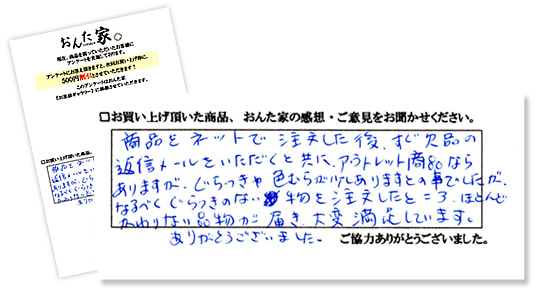 おんた家。
現在、商品を買っていただいたお客様に
アンケートを実施しております。
アンケートにお答え頂きますと、次回お買い上げ時に、
500円割引とさせていただきます！
このアンケートはおんた家
【お客様ギャラリー】に掲載させていただきます。
□お買い上げ頂いた商品、
□お買い上げ頂いた商品、おんた家の感想・ご意見をお聞かせください。
商品をネットで注文した後、すぐ欠品の
返信メールをいただくと共に、アウトレット商品なら
ありますが、ぐらつきや色むらが少しありますとの事でしたが、
なるべくぐらつきのない物を注文したところ、ほとんど
かわりない品物が届き、大変満足しています。
ありがとうございました。
ご協力ありがとうございました。